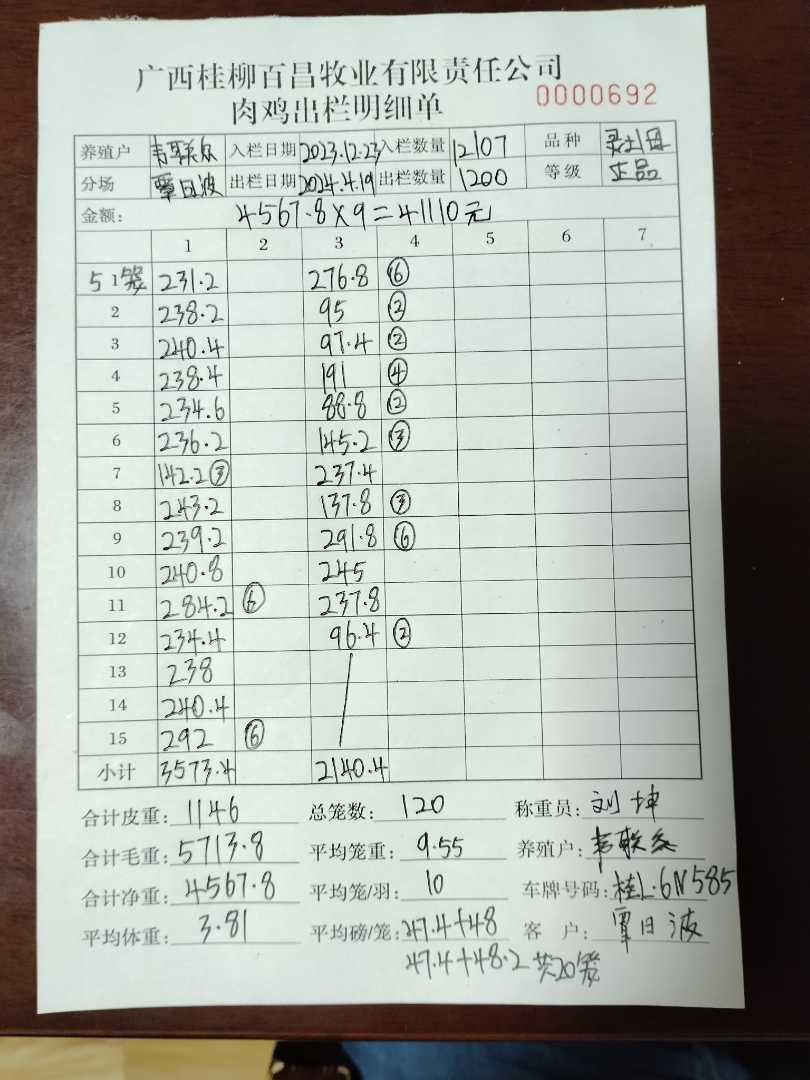 广西桂柳百昌牧业有限责任公司
肉鸡出栏明细单 0000692
养殖户 韦联众 入栏日期 2023.12.23 入栏数量 12107 品种
分场 覃日波 出栏日期 2024.4.19 出栏数量 1200 等级 正品
金额: 4567.8×9=41110元
1 2 3 4 5 6 7
5 1笼 231.2 276.8 ⑥
2 238.2 95 ②
3 240.4 97.4 ②
4 238.4 191 ④
5 234.6 88.8 ②
6 236.2 145.2 ③
7 142.2③ 237.4
8 243.2 137.8 ③
9 239.2 291.8 ⑥
10 240.8 245
11 284.2 ⑥ 237.8
12 234.4 96.4 ②
13 238
14 240.4
15 292 ⑥
小计 3573.4 2140.4
合计皮重: 1146 总笼数: 120 称重员: 刘坤
合计毛重: 5713.8 平均笼重: 9.55 养殖户: 韦联众
合计净重: 4567.8 平均笼/羽: 10 车牌号码: 桂L·6N585
平均体重: 3.81 平均磅/笼: 47.4+48 客 户: 覃日波
47.4+48.2 共20笼